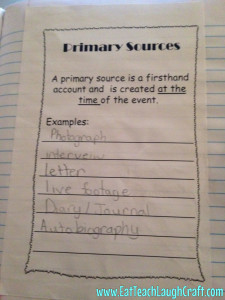 Primary Sources
A primary source is a firsthand
account and is created at the
time of the event.
Examples:
Photograph
interview
letter
live footage
Diary/Journal
Autobiography
www.EatTeachLaughCraft.com